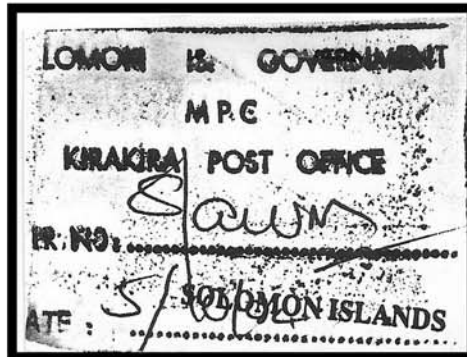 LOMON IS. GOVERNMENT
M P C
KIRAKIRA POST OFFICE
IR. NO:
SOLOMON ISLANDS
ATE : 5/